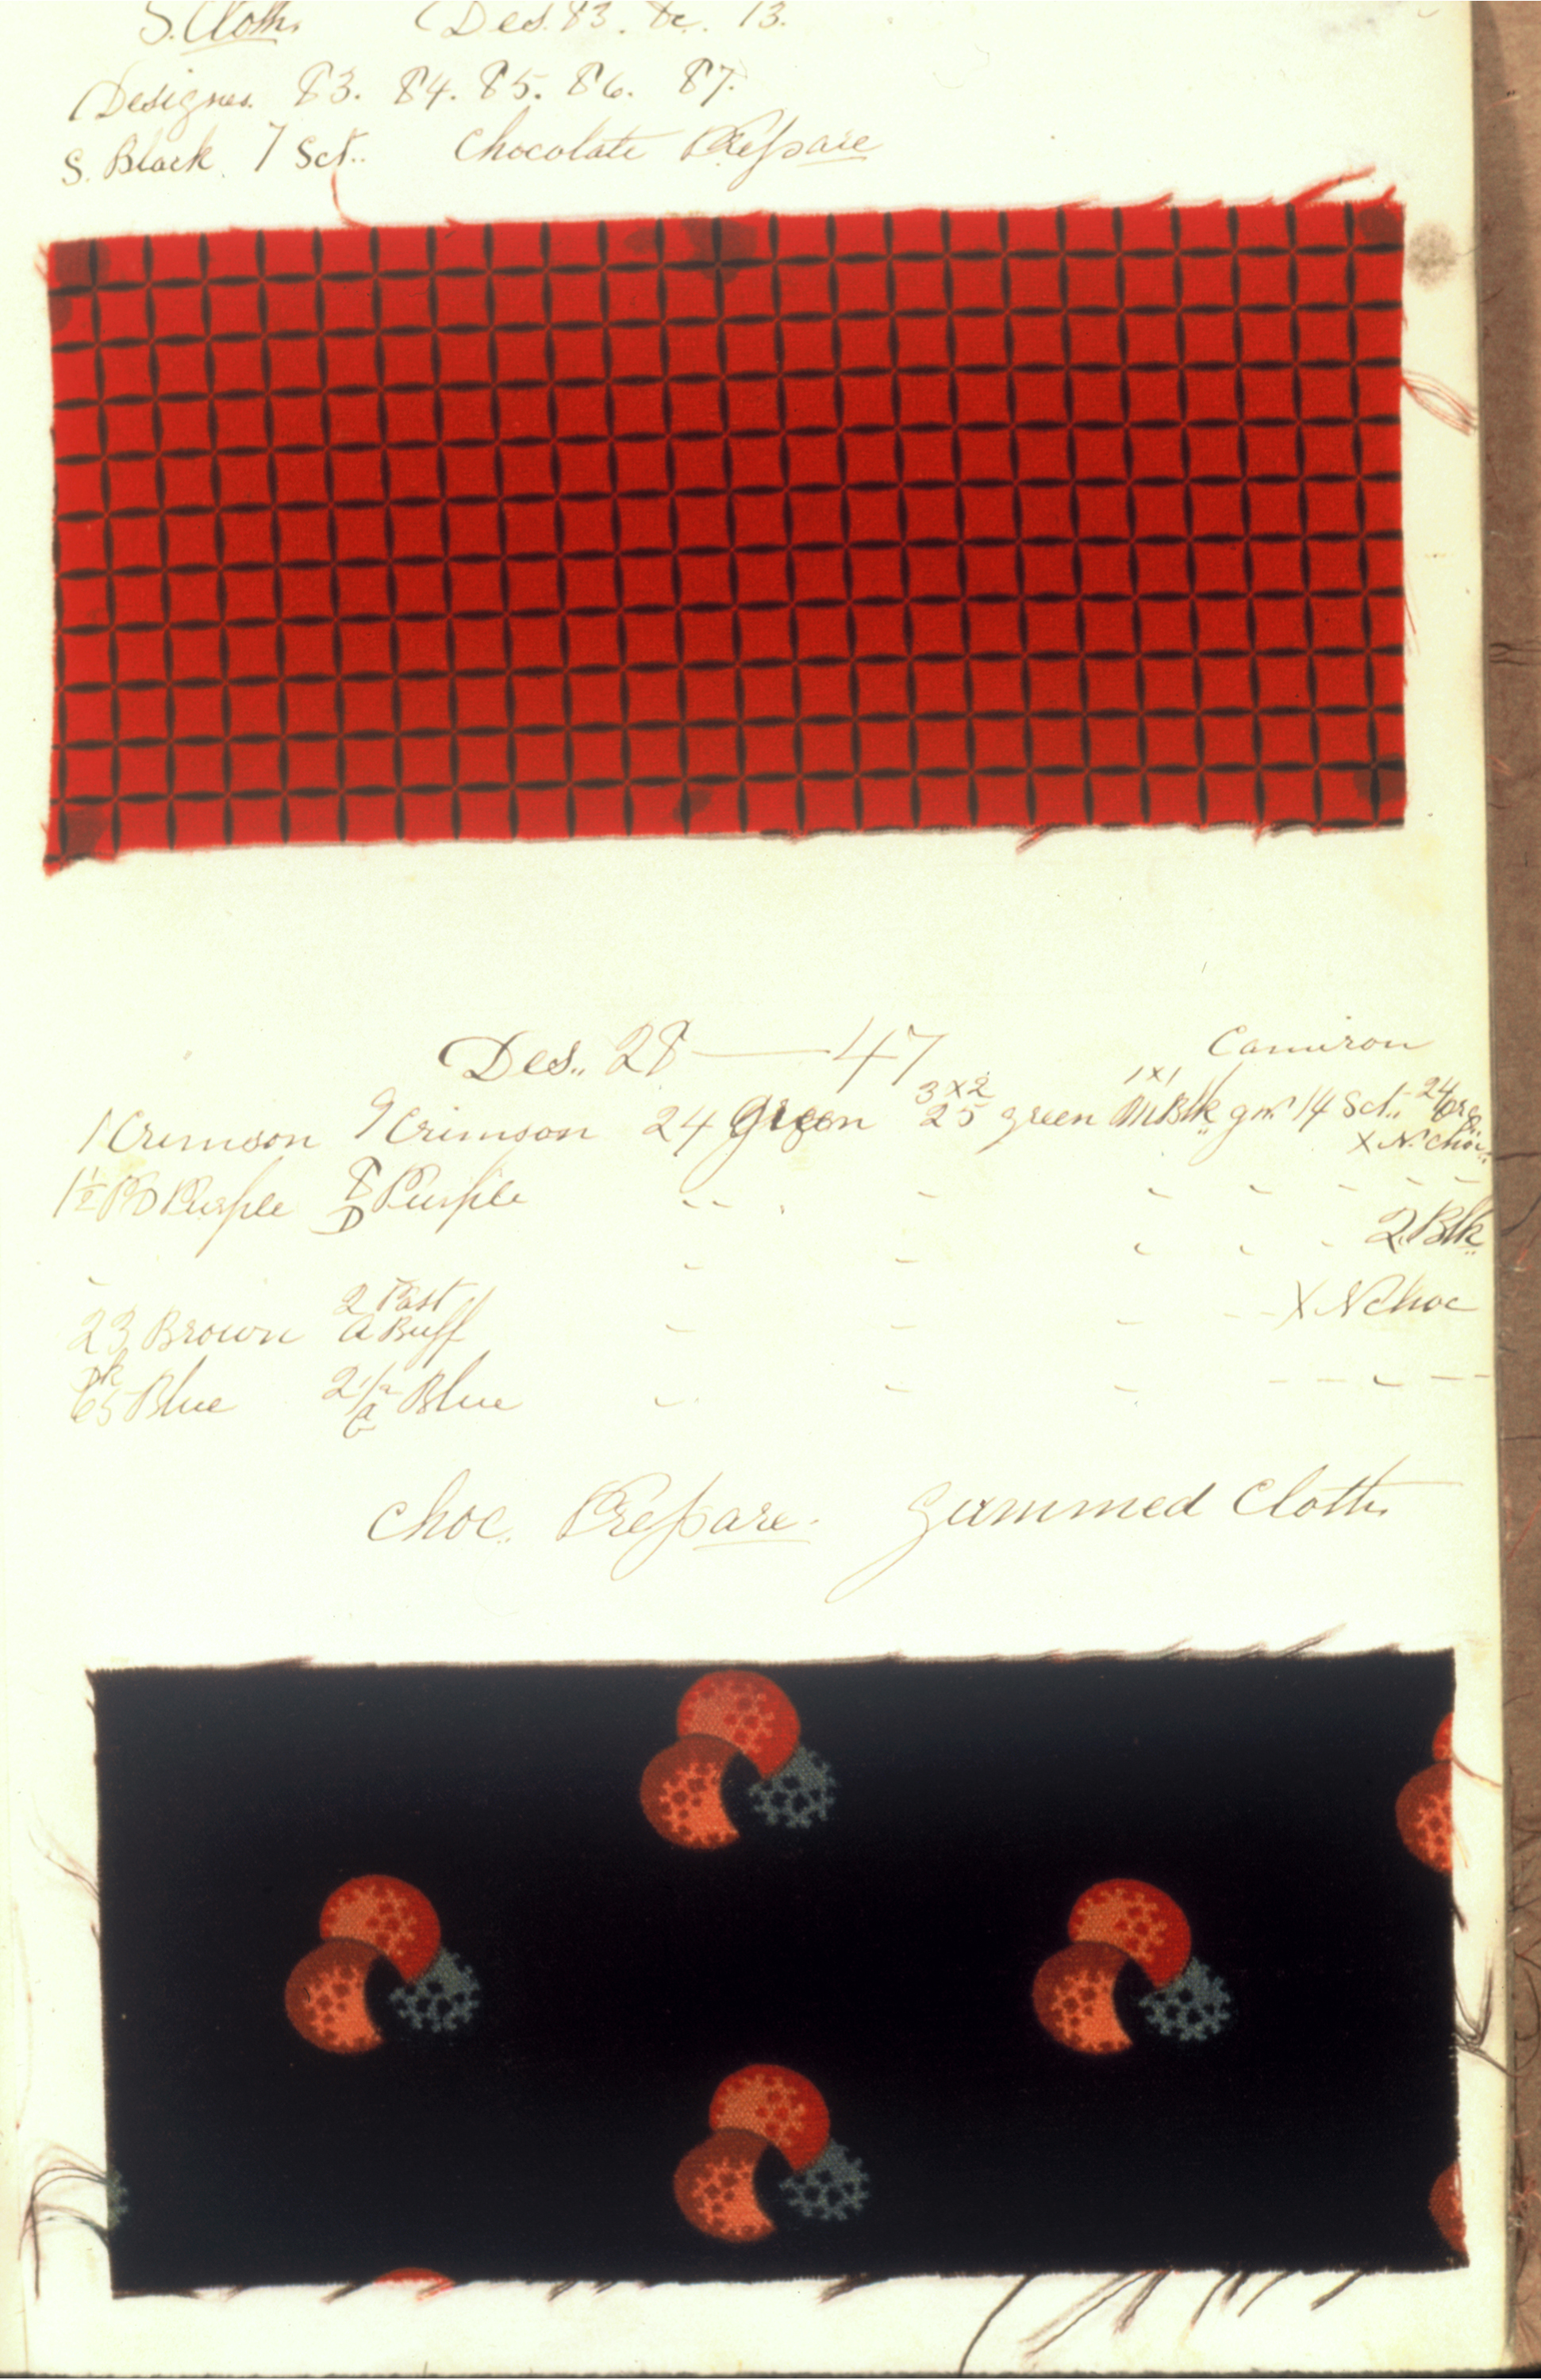 S. Cloth. Des. 83. &c. 13.
Designes. 83. 84. 85. 86. 87.
S. Black. 7 Sct.. Chocolate Prepare
Des.. 28 — 47
Camiron
1 Crimson 9 Crimson 24 Green 3x2 25 green 1x1 M Blk 14 Sct.. 24
X N. Choc.
1½ PD Purple 8 D Purple
2 Blk
23 Brown 2 Fast A Buff X N Choc
Dk 65 Blue 2 1/2 Blue
Choc. Prepare. Gummed Cloth.